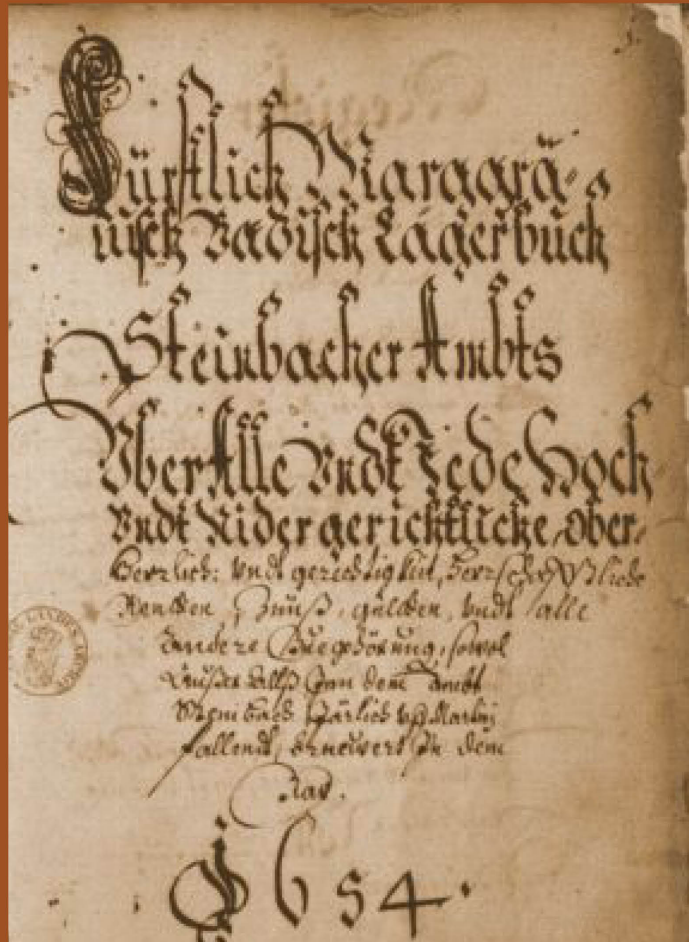 Fürstlich Marggrä-
visch Badisch Lägerbuch
Steinbacher Ambts
Vber Alle Vndt Jede Hoch
Vndt Nidergerichtliche, Ober-
herrlich: Vndt gerechtigkeit, herrschafftliche
Rendten, Zinnß, gülthen, Vndt alle
andere Zuegehörung, sowol
dem Ambt
Steinbach Järlich vff Martini
fallendt, Ernewert In dem
Jar.
1654.